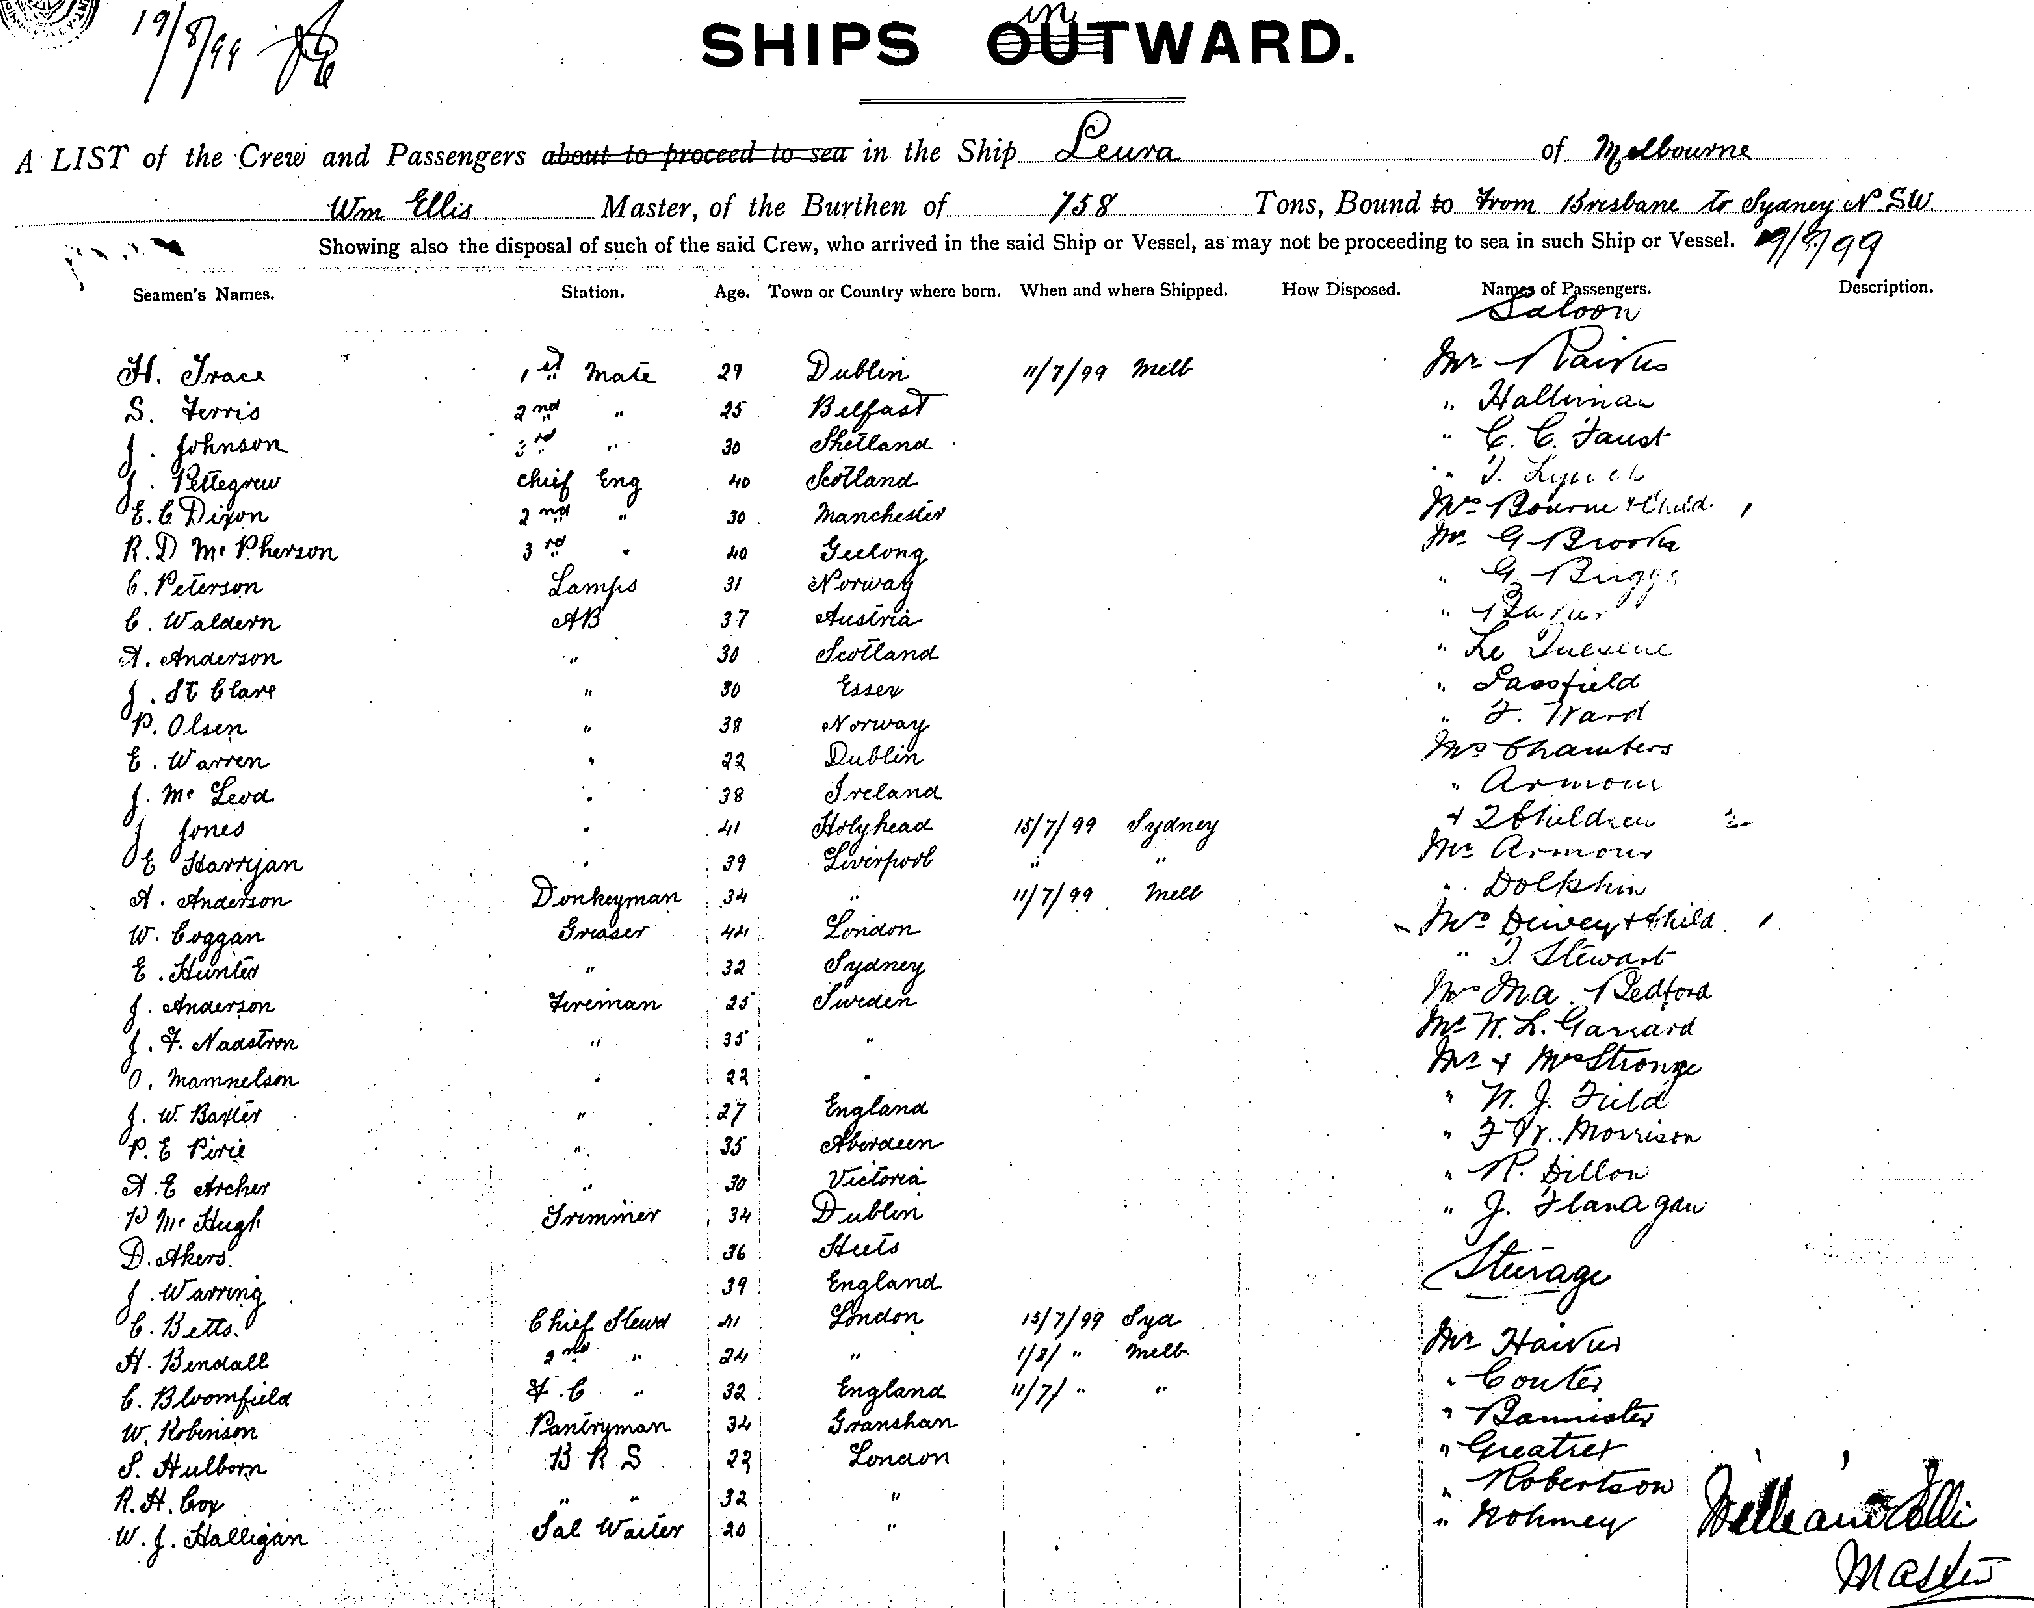 19/8/99
SHIPS OUTWARD.
in
A LIST of the Crew and Passengers about to proceed to sea in the Ship Leura of Melbourne
Wm Ellis Master, of the Burthen of 758 Tons, Bound to From Brisbane to Sydney N.S.W
Showing also the disposal of such of the said Crew, who arrived in the said Ship or Vessel, as may not be proceeding to sea in such Ship or Vessel. 19/8/99
Seamen's Names. Station. Age. Town or Country where born. When and where Shipped. How Disposed. Names of Passengers. Description.
Saloon
H. Trace 1st Mate 29 Dublin 11/7/99 Melb Mr
S. Ferris 2nd " 25 Belfast " Halliman
J. Johnson 3rd " 30 Shetland " C. C. Faust
J. Pettegrew Chief Eng 40 Scotland " T. Lynch
E. C Dixon 2nd " 30 Manchester Mrs Bourne & Child 1
R. D McPherson 3rd " 40 Geelong Mr G Brooks
C. Peterson Lamps 31 Norway " G Briggs
C. Waldern AB 37 Austria "
A. Anderson " 30 Scotland " Le Quesene
J. St Clare " 30 Essex " Passfield
P. Olsen " 38 Norway " F. Ward
E. Warren " 22 Dublin Mrs Chambers
J. Mc Leod " 38 Ireland " Armour
J Jones " 41 Holyhead 15/7/99 Sydney & 2 Children 2
E Harryan " 39 Liverpool " " Mr Armour
A. Anderson Donkeyman 34 " 11/7/99 Melb " Dolphin
W. Coggan Greaser 44 London Mrs Dewey & Child 1
E. Hunter " 32 Sydney " T Stewart
J. Anderson Fireman 25 Sweden Mrs Ma. Bedford
J. F. Nadstron " 35 " Mr W. L. Garrard
O. Mamnelson " 22 " Mr & Mrs Stronge
J. W. Baxter " 27 England " W. J. Field
P. E Pirie " 35 Aberdeen " F W. Morrison
A. E Archer " 30 Victoria " R. Dillon
P Mc Hugh Trimmer 34 Dublin " J. Flanagan
D. Akers. 36 Steerage
J. Warring 39 England
C. Betts. Chief Stewd 41 London 15/7/99 Syd Mr
H. Bendall 2nd " 24 " 1/8/ " Melb " Couter
C. Bloomfield F. C " 32 England 11/7/ " " " Bannister
W. Robinson Pantryman 34 Granshan " Greatrex
S. Hulborn B R S 22 London " Robertson
R. H. Cox " " 32 " " Rohmey
W. J. Halligan Sal Waiter 20 "
William Ellis
Master